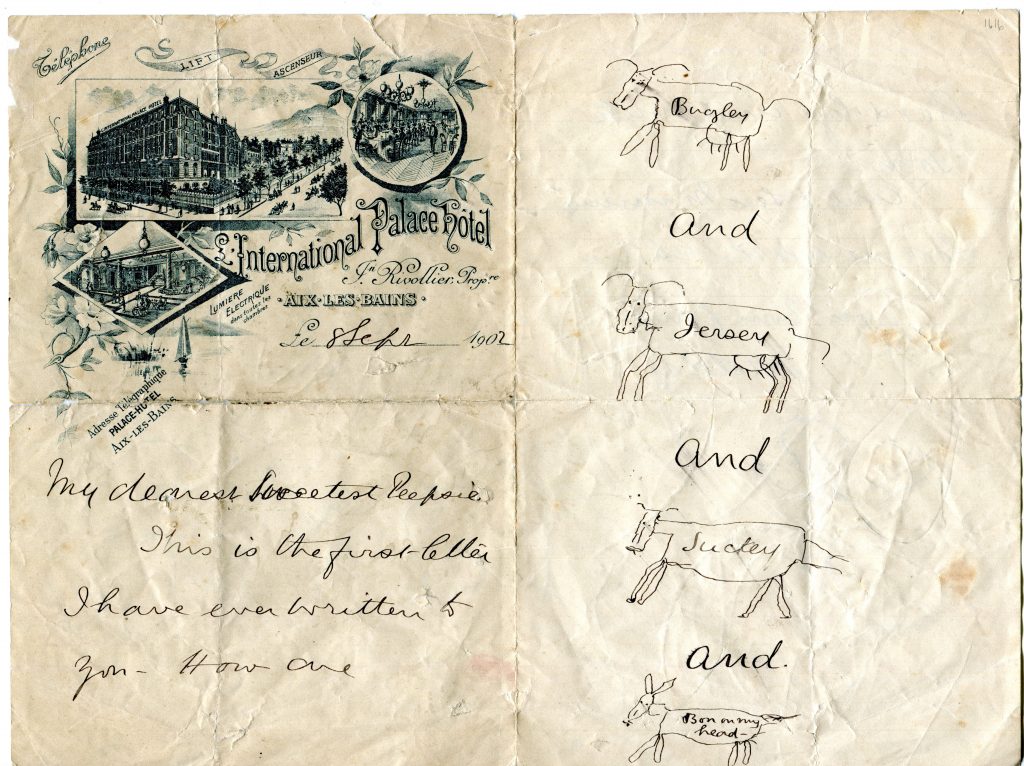 Téléphone
LIFT
ASCENSEUR
INTERNATIONAL PALACE HOTEL
L'International Palace Hôtel
Jn Rivollier, Propre
LUMIERE ELECTRIQUE
dans toutes les
chambres
· AIX·LES·BAINS ·
Le 8 Sept 1902
Adresse Télégraphique
PALACE-HOTEL
AIX-LES-BAINS
My dearest Sweetest Peepsie
This is the first letter
I have ever written to
you - How are
1616
Bugley
and
Jersey
and
Suckey
and.
Bon on my
head -